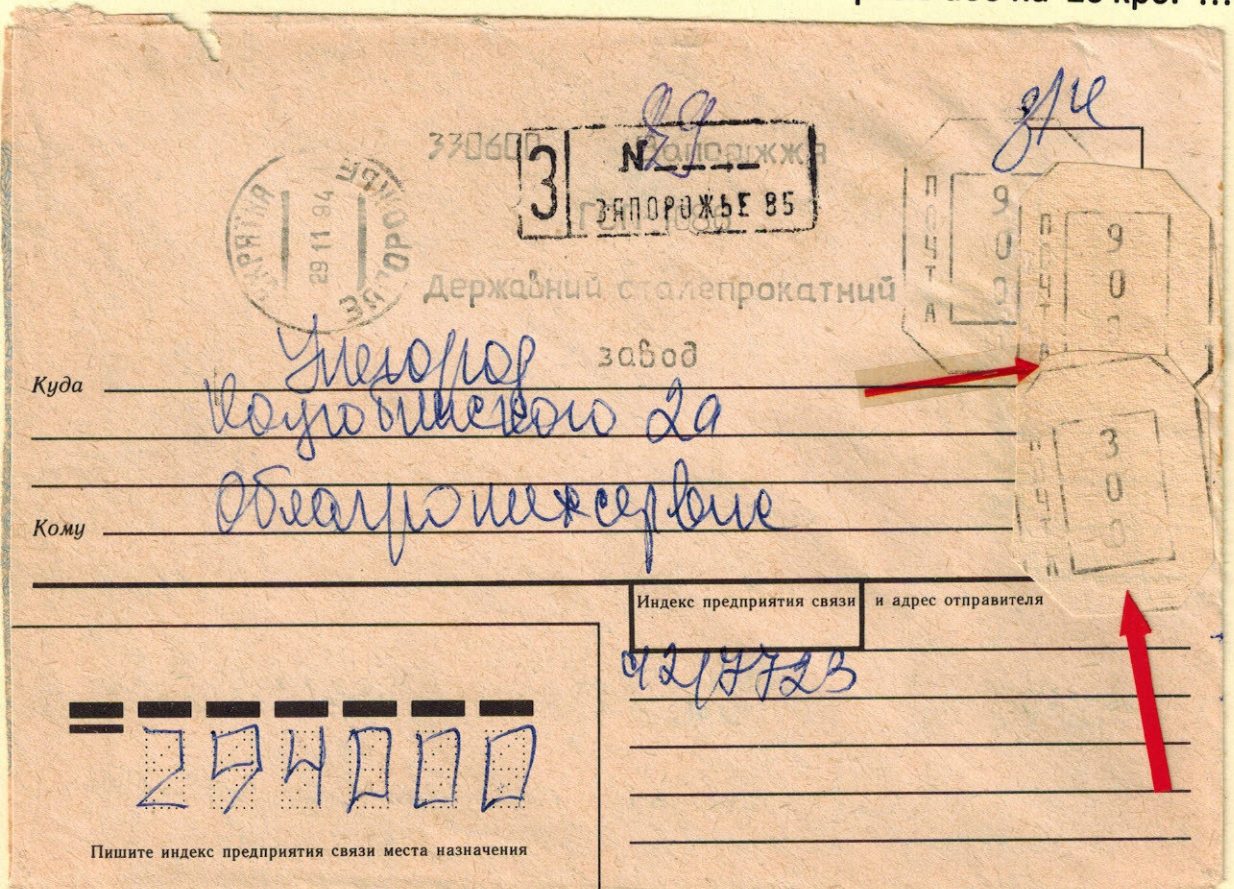 з/ц
89
330600 Запоріжжя
З N
ЗАПОРОЖЬЕ 85
ГСП 1089
УКРАЇНА
29 11 94
ЗАПОРІЖЖЯ
Державний сталепрокатний
завод
ПОЧТА 900
ПОЧТА 900
ПОЧТА 300
Куда Ужгород
Коцюбинского 2а
Кому Облагротехсервис
Индекс предприятия связи и адрес отправителя
42/7723
294000
Пишите индекс предприятия связи места назначения